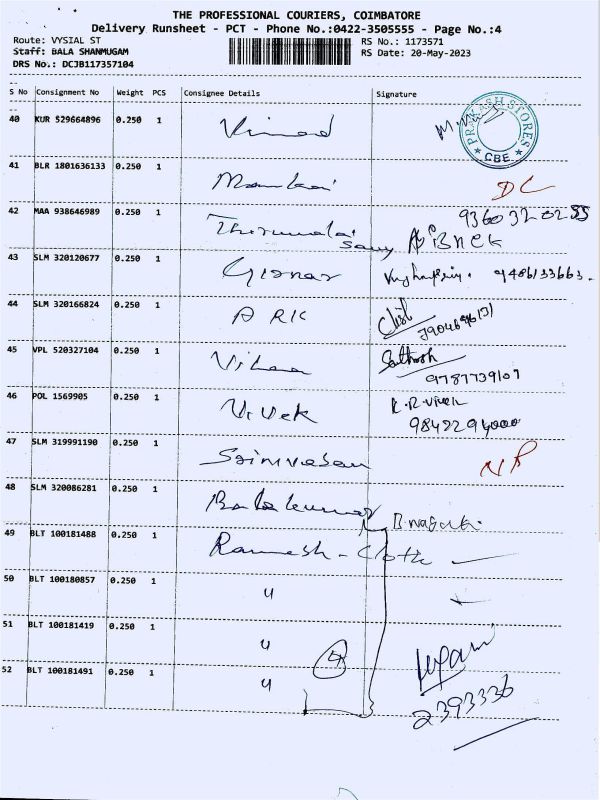 THE PROFESSIONAL COURIERS, COIMBATORE
Delivery Runsheet - PCT - Phone No.:0422-3505555 - Page No.:4
Route: VYSIAL ST RS No.: 1173571
Staff: BALA SHANMUGAM RS Date: 20-May-2023
DRS No.: DCJB117357104
S No Consignment No Weight PCS Consignee Details Signature
40 KUR 529664896 0.250 1 Vinod PRAKASH STORES CBE
41 BLR 1801636133 0.250 1 DC
42 MAA 938646989 0.250 1 Thirumalai Samy
43 SLM 320120677 0.250 1 Girnar 9486133663.
44 SLM 320166824 0.250 1 A R K
45 VPL 520327104 0.250 1 Sathosh
9787739107
46 POL 1569905 0.250 1 Vivek K.R. Vivek
9842294000
47 SLM 319991190 0.250 1 Srinivasan
48 SLM 320086281 0.250 1 Balakumar
49 BLT 100181488 0.250 1 Ramesh - Cloth
50 BLT 100180857 0.250 1 "
51 BLT 100181419 0.250 1 "
4
52 BLT 100181491 0.250 1 "
2393336